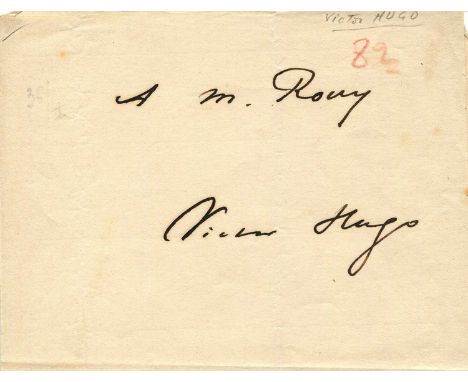 Victor HUGO
82
A M. Rouy
Victor Hugo